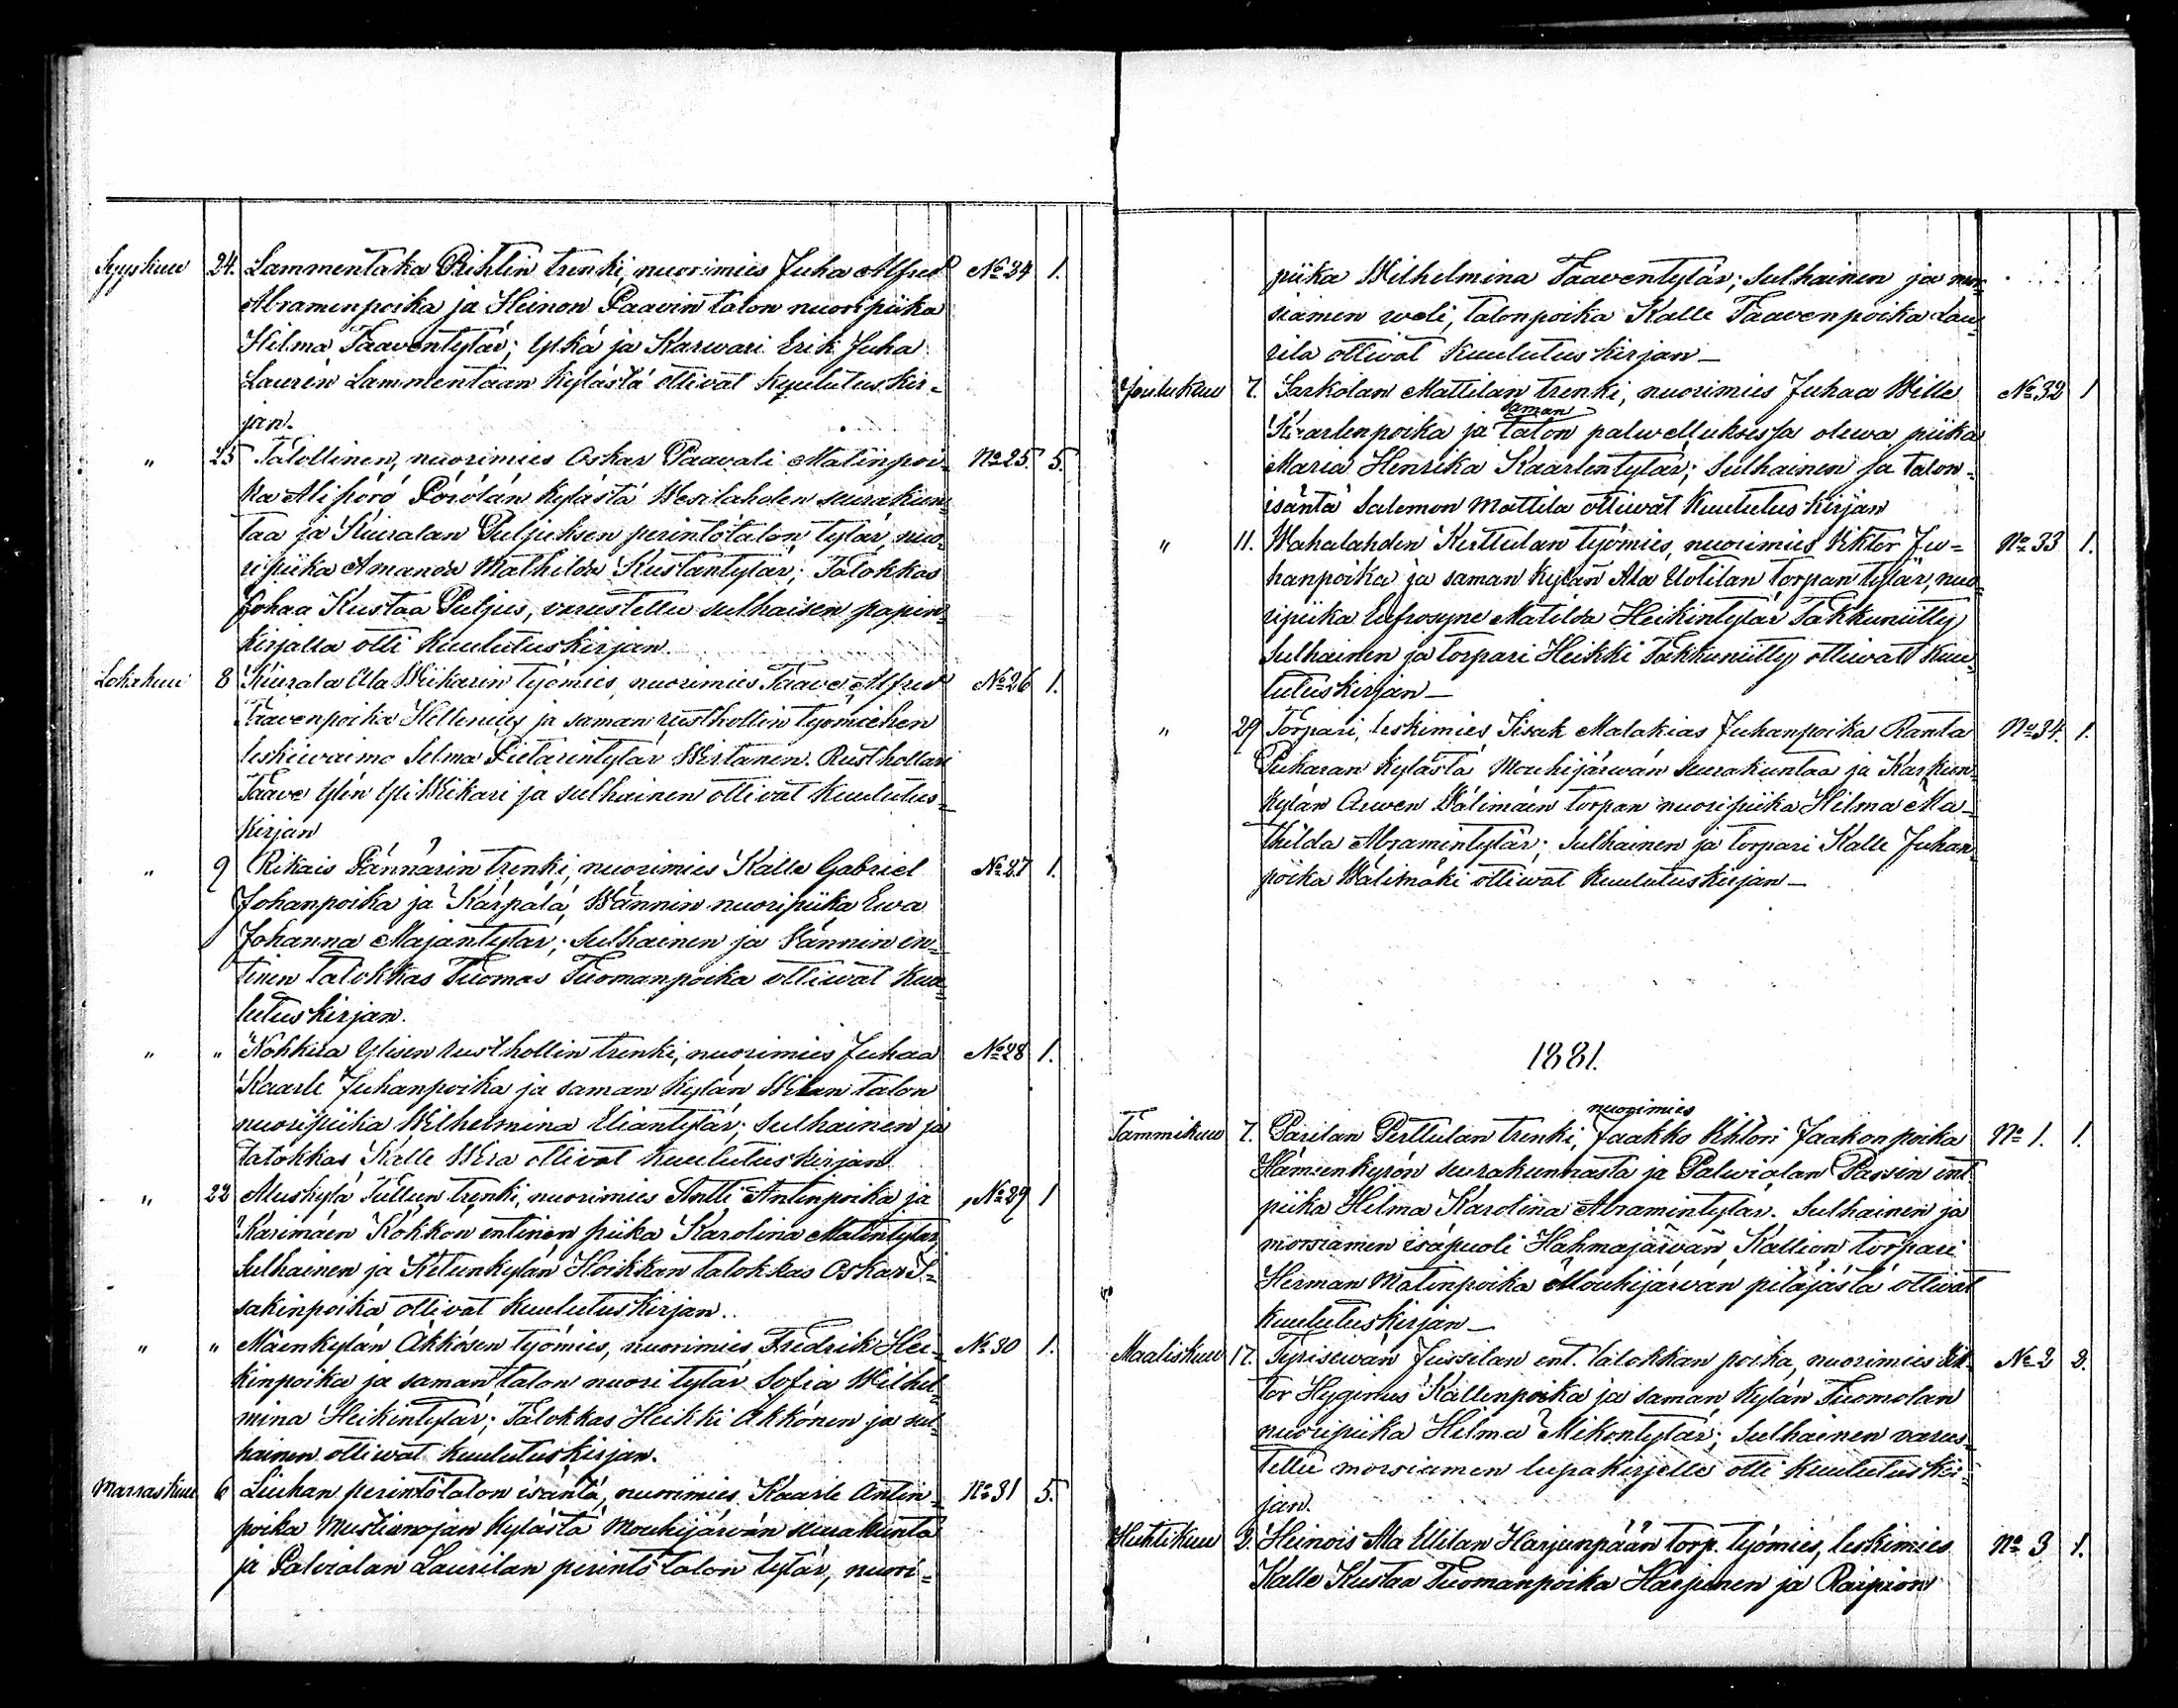 Syyskuu 24. Lammentaka Rihlin trenki, nuorimies Juha Alfred No 24 1.
Abramenpoika ja Heinon Paavin talon nuoripiika
Hilma Taaventytär; Ylkä ja Karwari Erik Juha
Laurén Lammentaan kylästä ottivat kuulutuskir-
jan.
" 25 Talollinen, nuorimies Oskar Paavali Matinpoi- No 25. 5.
ka Alipörö Pörölän kylästä Wesilahden seurakun-
taa ja Kiuralan Puljuksen perintötalon tytär nuo-
ripiika Amanda Mathilda Kustantytär; Talokkas
Johaa Kustaa Puljus, varustettu sulhaisen papin-
kirjalla otti kuulutuskirjan.
Lokakuu 8 Kiurala Ala Wiikarin työmies, nuorimies Taave Alfred No 26 1.
Taavenpoika Hellenius ja saman rusthollin työmiehen
leskiwaimo Selma Pietarintytär Wirtanen. Rusthollari
Taave Ylén Yli Wiikari ja sulhainen ottivat kuulutus-
kirjan
" 9 Rikais Pännärin trenki, nuorimies Kalle Gabriel No 27 1.
Johanpoika ja Kärpälä Wännin nuoripiika Ewa
Johanna Majantytär; Sulhainen ja Wännin en-
tinen talokkas Tuomas Tuomanpoika ottiwat kuu-
lutuskirjan.
" " Nohkua Ylisen rusthollin trenki, nuorimies Juhaa No 28 1.
Kaarle Juhanpoika ja saman kylän talon
nuoripiika Wilhelmina Eliantytär; Sulhainen ja
talokkas Kalle ottivat kuulutuskirjan.
" 22 Aluskylä Tullun trenki, nuorimies Antti Antinpoika ja No 29 1
Karimäen Kokkon entinen piika Karolina Matintytär,
Sulhainen ja Ketunkylän Hoikkan talokkas Oskar I-
sakinpoika ottivat kuulutuskirjan.
" " Mäenkylän Äkkösen työmies, nuorimies Fredrik Hei- No 30 1.
kinpoika ja saman talon nuori tytär Sofia Wilhel-
mina Heikintytär; Talokkas Heikki Äkkönen ja sul-
hainen ottiwat kuulutuskirjan.
Marraskuu 6 Liuhan perintötalon isäntä, nuorimies Kaarle Antin- No 31 5.
poika Mustianojan kylästä Mouhijärwän seurakunta
ja Palvialan Laurilan perintö talon tytär, nuori-
piika Wilhelmina Taaventytär; Sulhainen ja mor-
siamen weli, talonpoika Kalle Taavenpoika Lau-
rila ottivat kuulutuskirjan—
Joulukuu 7. Sarkolan Mattilan trenki, nuorimies Juhaa Wille No 32 1
Kaarlenpoika ja saman talon palwelluksessa olewa piika
Maria Henrika Kaarlentytär; Sulhainen ja talon-
isäntä Salomon Mattila ottiwat kuulutuskirjan
" 11. Wahalahden Kerttulan työmies, nuorimies Viktor Ju- No 33 1.
hanpoika ja saman kylän Ala Uotilan torpan tytär, nuo-
ripiika Eufrosyne Matilda Heikintytär Takkuniitty
Sulhainen ja torpari Heikki Takkuniitty ottiwat kuu-
lutuskirjan—
" 29 Torpari, leskimies Iisak Malakias Juhanpoika Ranta No 34. 1.
Pukaran kylästä Mouhijärwän seurakuntaa ja Karkun-
kylän Arwen Wälimäen torpan nuoripiika Hilma Ma-
thilda Abramintytär; Sulhainen ja torpari Kalle Juhan-
poika Wälimäki ottiwat kuulutuskirjan—
1881.
Tammikuu 7. Parilan Perttulan trenki, nuorimies Jaakko Vihtori Jaakonpoika No 1. 1.
Hämeenkyrön seurakunnasta ja Palwialan Passin ent.
piika Hilma Karolina Abramintytär. Sulhainen ja
morsiamen isäpuoli Hahmajärwän Kallion torpari
Herman Matinpoika Mouhijärwän pitäjästä ottiwat
kuulutuskirjan—
Maaliskuu 17. Tyrisewän Jussilan ent. talokkan poika, nuorimies Vik- No 2 3.
tor Hyginus Kallenpoika ja saman kylän Tuomolan
nuoripiika Hilma Mikontytär; Sulhainen varus-
tettu morsiamen lupakirjalla otti kuulutuskir-
jan.
Huhtikuu 3. Heinois Ala Ullilan Harjunpään torp. työmies, leskimies No 3 1.
Kalle Kustaa Tuomanpoika Harjunen ja Raipion